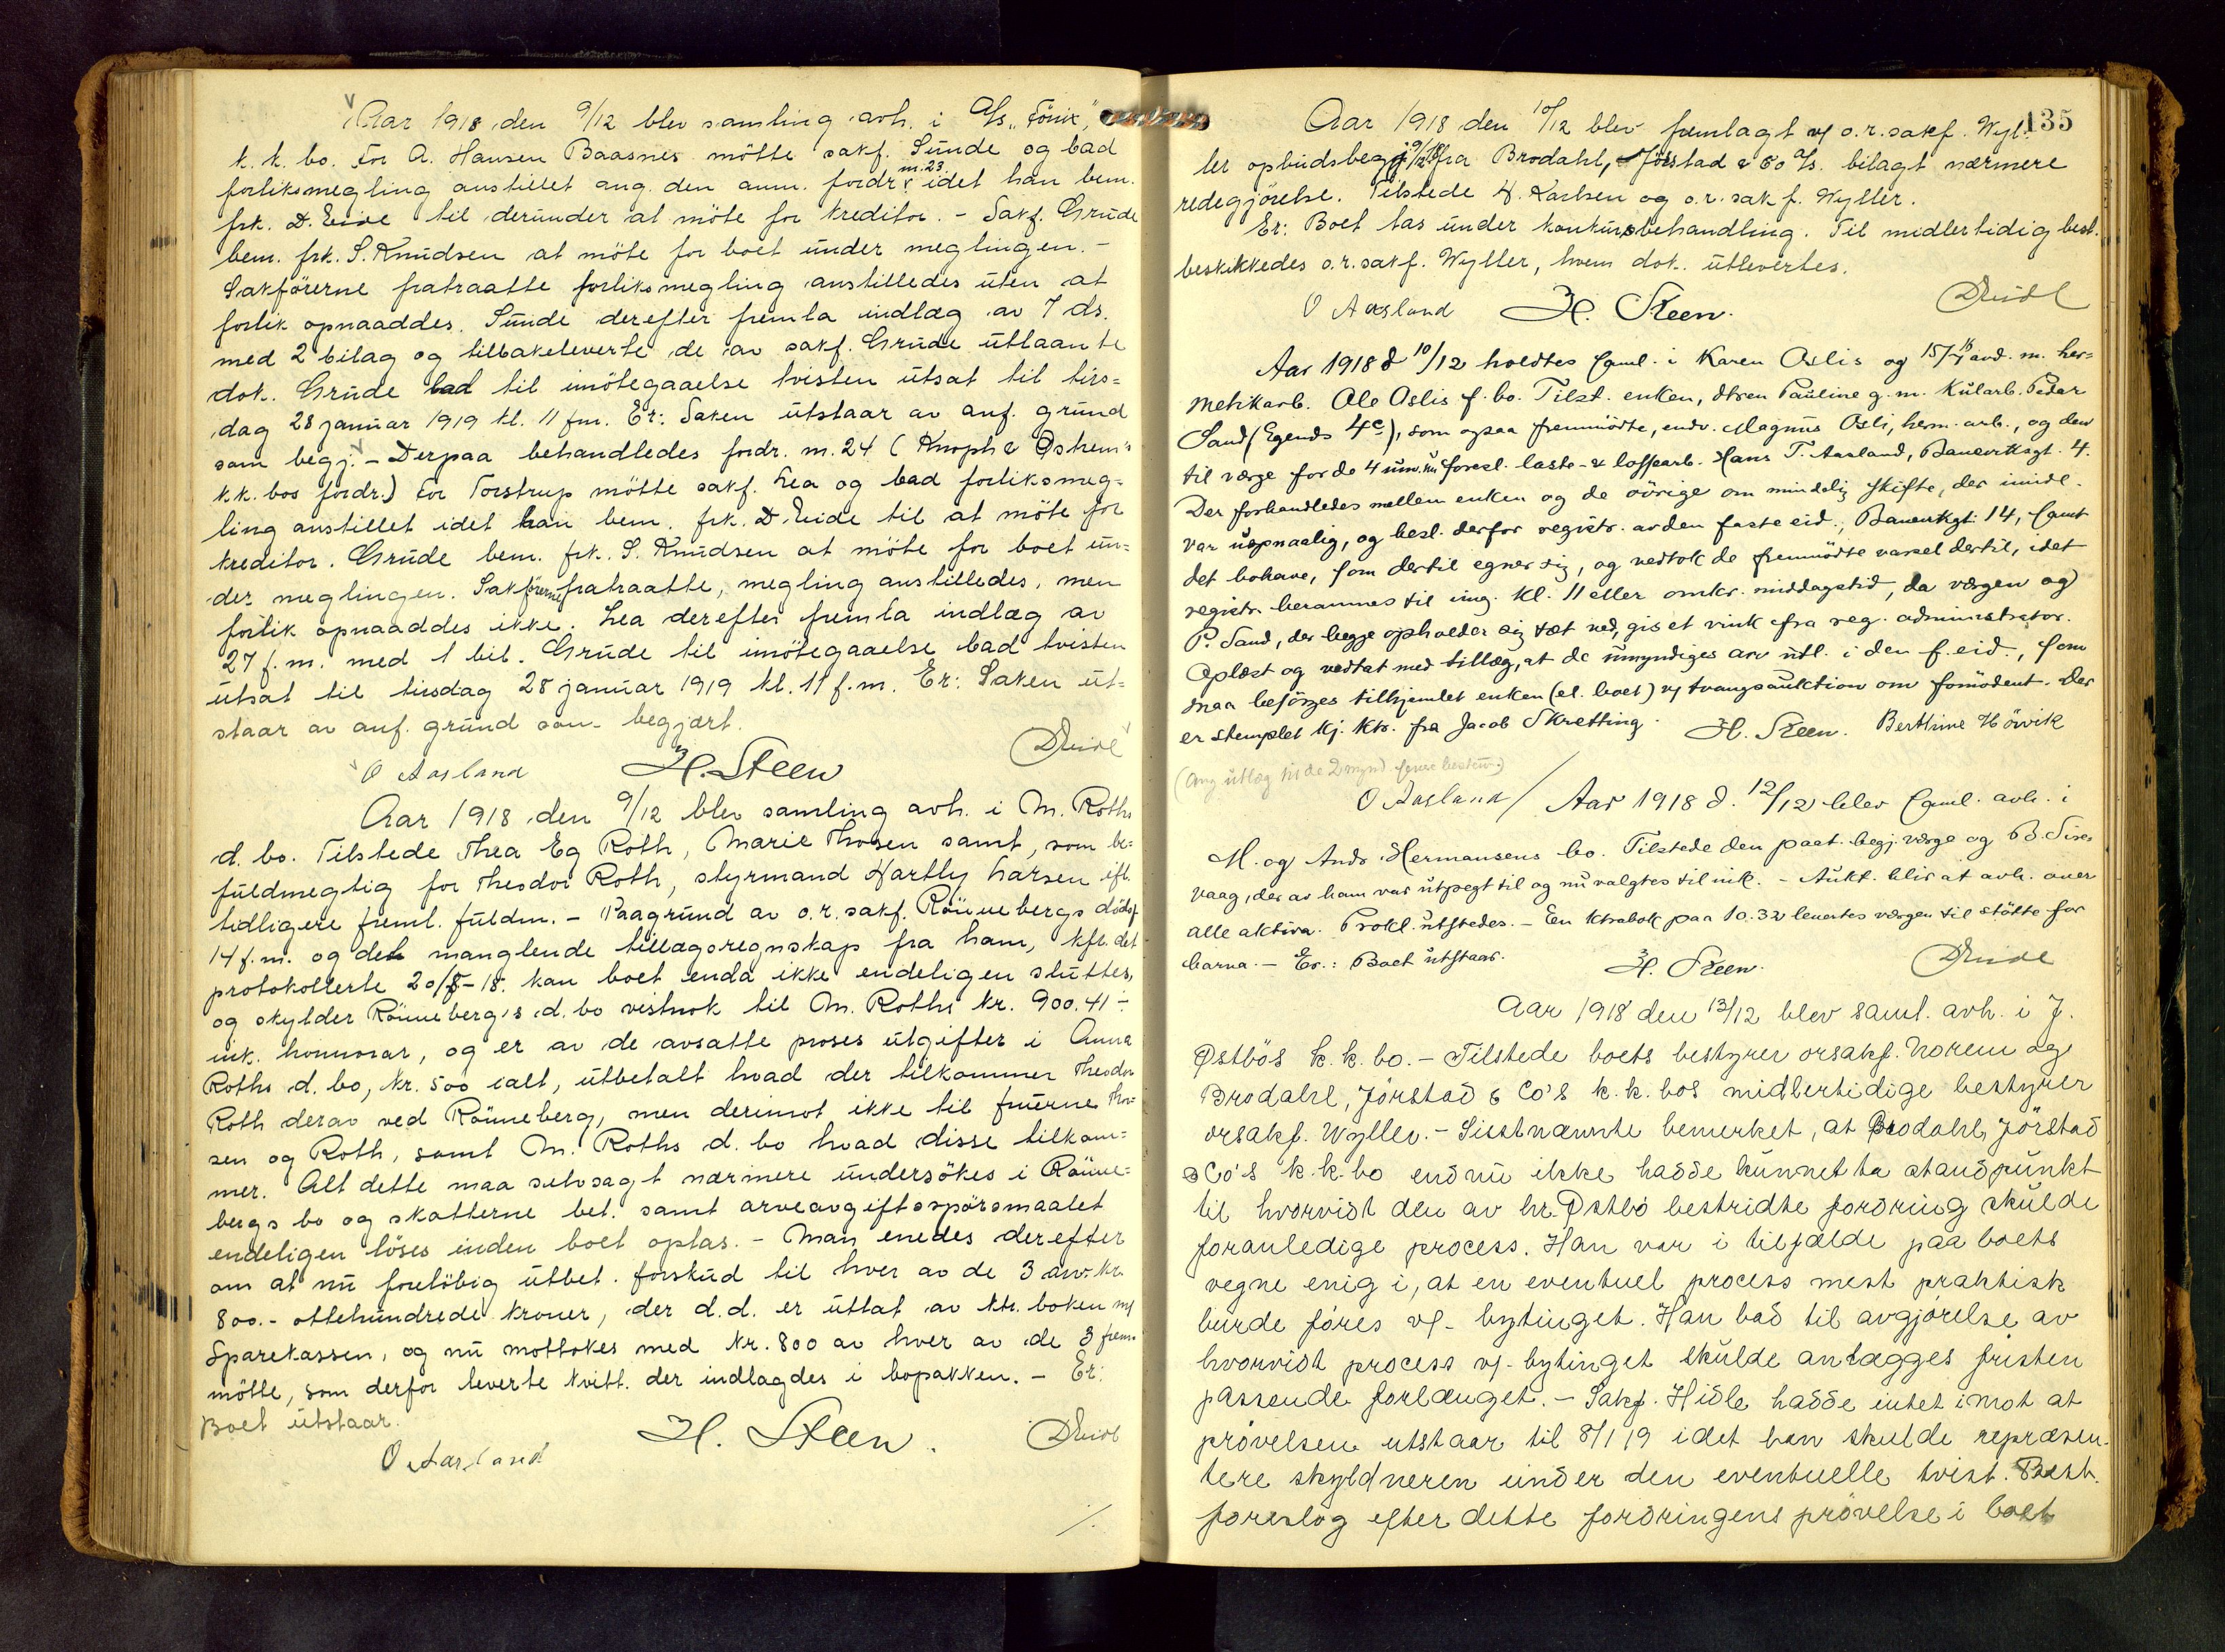 Aar 1918 den 9/12 blev samling avh. i A/s „Fönix",
k. k. bo. For A. Hansen Baasnes mötte sakf. Sunde og bad
m. 23.
forliksmegling anstillet ang. den anm. fordr. idet han bem.
frk. D. Eide til derunder at möte for kreditor. - Sakf. Grude
bem. frk. S. Knudsen at möte for boet under meglingen. -
Sakförerne fratraatte forliksmegling anstilledes uten at
forlik opnaaddes. Sunde derefter fremla indlæg av 7 ds.
med 2 bilag og tilbakeleverte de av sakf. Grude utlaante
dok. Grude bad til imötegaaelse tvisten utsat til tirs=
dag 28 januar 1919 kl. 11 fm. Er: Saken utstaar av anf. grund
som begj. - Derpaa behandledes fordr. m. 24 (Knoph & Östrem's
k.k. bos fordr.) For Torstrup mötte sakf. Lea og bad forliksmeg=
ling anstillet idet han bem. frk. D. Eide til at möte for
kreditor. Grude bem. frk. S. Knudsen at möte for boet un=
der meglingen. Sakförerne fratraatte, megling anstilledes, men
forlik opnaaddes ikke. Lea derefter fremla indlæg av
27 f.m. med 1 bil. Grude til imötegaaelse bad tvisten
utsat til tirsdag 28 januar 1919 kl. 11 f.m. Er: Saken ut=
staar av anf. grund som begjært.
O Aasland H. Steen DEide
Aar 1918 den 9/12 blev samling avh. i M. Roths
d. bo. Tilstede Thea Eg Roth, Marie Thosen samt, som be=
fuldmegtig for Theodor Roth, styrmand Hartly Larsen ifl.
tidligere freml. fuldm. - Paagrund av o.r. sakf. Rönnebergs dödsf
14 f.m. og det manglende tillægsregnskap fra ham, kfr. det
protokollerte 20/8-18. kan boet enda ikke endeligen sluttes,
og skylder Rönneberg's d. bo vistnok til M. Roths kr. 900.41 -
ink. honnorar, og er av de avsatte proses utgifter i Anna
Roths d. bo, kr. 500 ialt, utbetalt hvad der tilkommer Theodor
Roth derav ved Rönneberg, men derimot ikke til fruerne Tho=
sen og Roth, samt M. Roths d. bo hvad disse tilkom=
mer. Alt dette maa selvsagt nærmere undersökes i Rönne=
bergs bo og skatterne bet. samt arveavgiftsspörsmaalet
endeligen löses inden boet optas. - Man enedes derefter
om at nu foreløbig utbet. forskud til hver av de 3 arv. kr.
800.- ottehundrede kroner, der d.d. er uttat av ktr. boken m/
Sparekassen, og nu mottokes med kr. 800 av hver av de 3 frem=
mötte, som derfor leverte kvitt. der indlagdes i bopakken. - Er:
Boet utstaar.
O Aasland H. Steen. DEide
135
Aar 1918 den 10/12 blev fremlagt v/ o.r. sakf. Wyl=
ler opbudsbegj. 9/12 18 fra Brodahl, Jörstad & Co A/s. bilagt nærmere
redegjörelse. Tilstede H. Karlsen og o.r. sakf. Wyller.
Er: Boet tas under konkursbehandling. Til midlertidig best.
beskikkedes o.r. sakf. Wyller, hvem dok. utlevertes.
O Aasland H. Steen. DEide
Aar 1918 d 10/12 holdtes saml. i Karen Oslis og avd. m. her=
metikarb. Ole Oslis f. bo. Tilst. enken, dtren Pauline g.m. Kularb. Peder
Sand (Egends 4 c), som ogsaa fremmödte, endv. Magnus Osli, herm. arb., og den
til værge for de 4 um. nu foresl. laste- & lossearb. Hans T. Aasland, Banevktsgt. 4.
Der forhandledes mellem enken og de övrige om mindelig skifte, der imidl.
var uopnaalig, og besl. derfor registr. av den faste eid., Banevktgt. 14, samt
det bohave, som dertil egner sig, og vedtok de fremmödte varsel dertil, idet
registr. berammes til img. kl. 11 eller omkr. middagstid, da værgen og
P. Sand, der begge opholder sig tæt ved, gis et vink fra reg. administrator.
Oplæst og vedtat med tillæg, at de umyndiges arv utl. i den f. eid., som
maa besörges tilhjemlet enken (el. boet) v/ tvangsauktion om fornödent. Der
er stemplet kj. ktr. fra Jacob Skretting. H. Steen. Berthine Hövik
(Ang utlæg til de 2 mynd senere bestem.)
O Aasland / Aar 1918 d. 12/12 blev saml. avh. i
M. og Ands Hermansens bo. Tilstede den paat. begj. værge og B. Sire=
vaag, der av ham var utpegt til og nu valgtes til ink. - Aukt. blir at avh. over
alle aktiva. Prokl. utstedes. - En ktrabok paa 10.32 levertes værgen til stötte for
barna. - Er.: Boet utstaar. H. Steen. DEide
Aar 1918 den 13/12 blev saml. avh. i J.
Østbös k. k. bo. - Tilstede boets bestyrer orsakf. Norem og
Brodahl, Jörstad & Co's k. k. bos midlertidige bestyrer
orsakf. Wyller. - Sistnævnte bemerket, at Brodahl, Jörstad
& Co's k. k. bo endnu ikke hadde kunnet ta standpunkt
til hvorvidt den av hr. Østbö bestridte fordring skulde
foranledige process. Han var i tilfælde paa boets
vegne enig i, at en eventuel process mest praktisk
burde föres v/ bytinget. Han bad til avgjörelse av
hvorvidt process v/ bytinget skulde anlægges fristen
passende forlænget. - Sakf. Hidle hadde intet imot at
prövelsen utstaar til 8/1 19 idet han skulde repræsen-
tere skyldneren under den eventuelle tvist. Best.
foreslog efter dette fordringens prövelse i boet